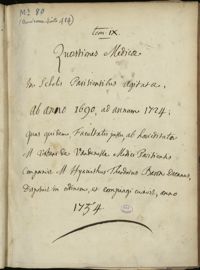 Ms 80
Tom. IX.
Quæstiones Medicæ
In Scholis Parisiensibus Agitatæ,
Ab anno 1690, ad annum 1724;
quas quidem Facultati ab hæreditate
M Vandermonde Medici Parisiensis
M Hyacinthus Theodorus Baron Decanus,
in ordinem, et compingi curavit, anno
1754